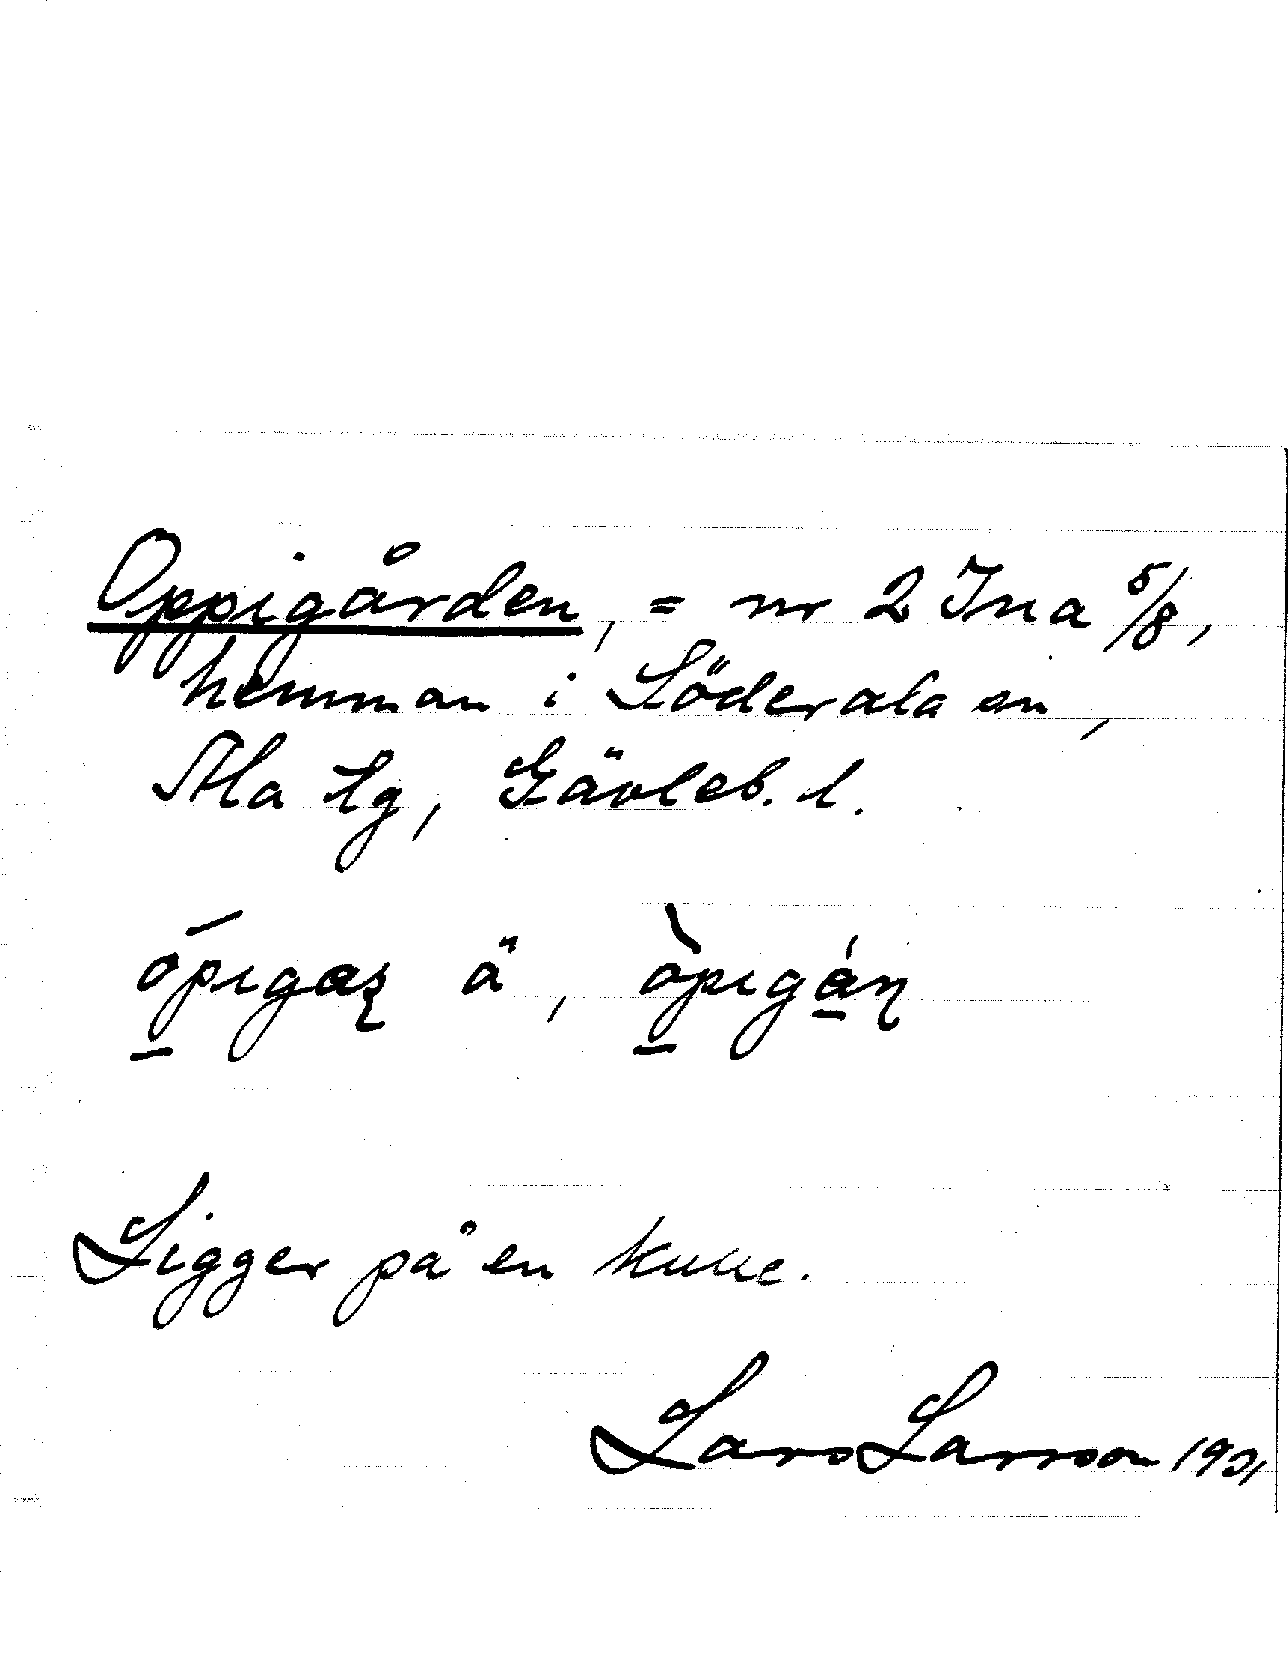 Oppigården, = nr 2 Ina 5/8,
hemman i Söderala sn,
Ala tg, Gävleb. l.
ä,
Ligger på en kulle.
Lars Larsson 1931